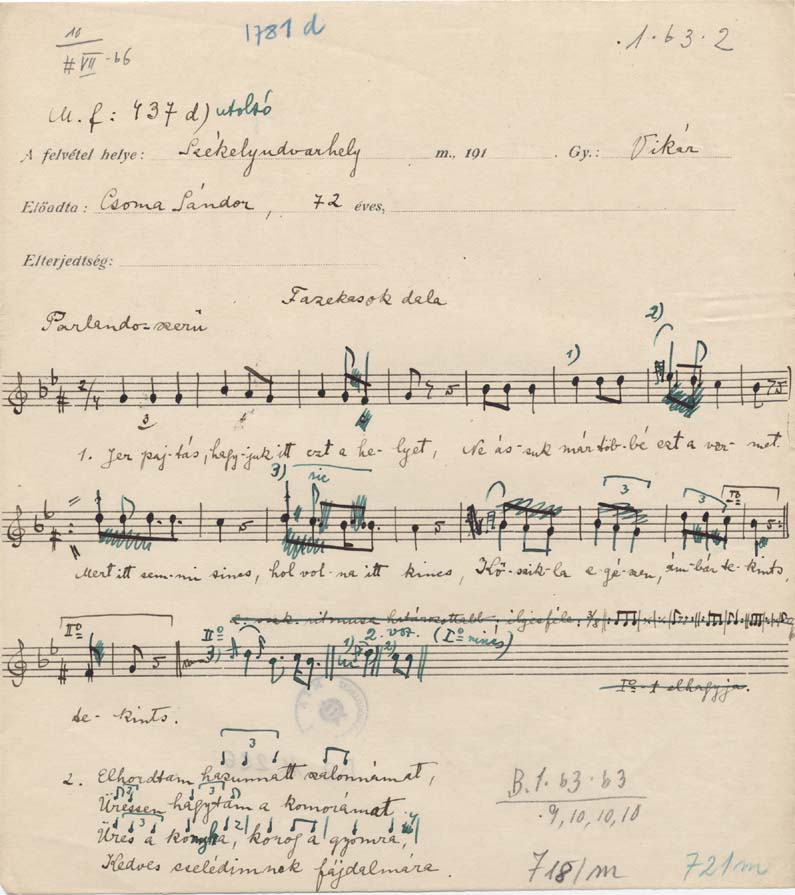 10 1781 d .1.b3.2
# VII -b6
M. f: 437 d) utolsó
A felvétel helye: Székelyudvarhely m., 191 . Gy.: Vikár
Előadta: Csoma Sándor, 72 éves,
Elterjedtség:
Fazekasok dala
Parlando-szerű
1) 2)
2/4 3
1. Jer paj-tás, hagy-juk itt ezt a he-lyet, Ne ás-suk már töb-bé ezt a ver-met.
3) sic 3 3 IIº
Mert itt sem-mi sincs, hol vol-na itt kincs, Kő-szik-la e-gé-szen, ám-bár te-kints,
2. vsz. ritmusa határozottabb, ilyesféle: 3/8
Iº IIº 3) 1) 2. vsz. 2) (Iº nincs)
Iº-t elhagyja.
te-kints.
3
2. Elhordtam haszunnatt szalonnámat,
Üressen hagytam a komorámat.
Üres a konyha, korog a gyomra,
Kedves cselédimnek fájdalmára.
B.1.b3.b3
.9,10,10,10
718/m 721m